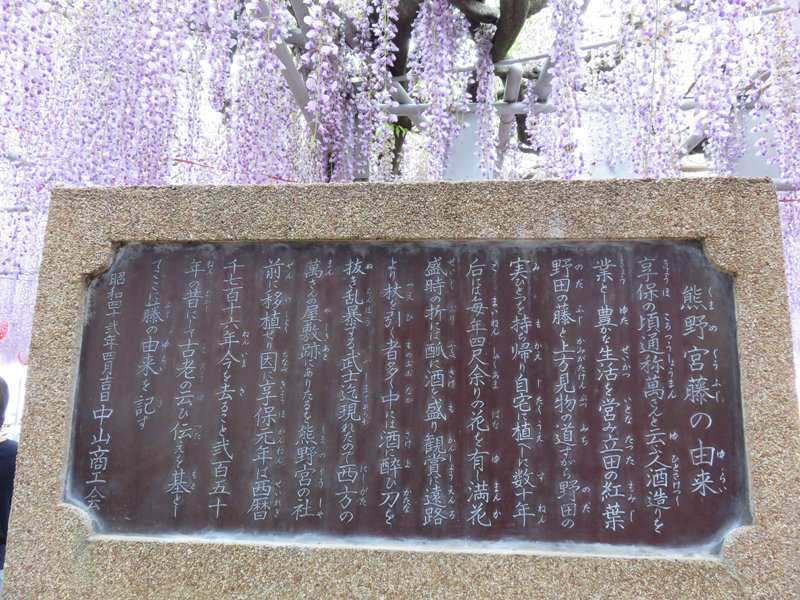 熊野宮藤の由来
享保の頃通称萬さんと云ふ人酒造りを
業とし豊かな生活を営み立田の紅葉
野田の藤と上方見物の道すがら野田の
実ひとつを持ち帰り自宅へ植しに数十年
后には毎年四尺余りの花を有し満花
盛時の折には酛に酒を盛り観賞に遠路
より杖を引く者多く中には酒に酔ひ刀を
抜き乱暴する武士迄現れたるので西方の
萬さの屋敷跡にありたるを熊野宮の社
前に移植せり因に享保元年は西暦
千七百十六年今を去ること弐百五十
年の昔にして古老の云ひ伝えを基とし
てここに藤の由来を記す
昭和四十弐年四月吉日 中山商工会